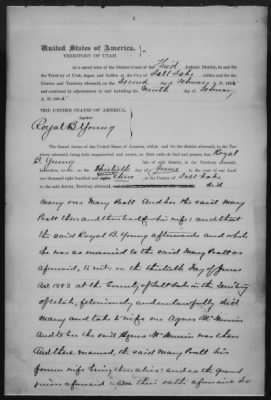 United States of America,
TERRITORY OF UTAH.
At a stated term of the District Court of the Third Judicial District, in and for
the Territory of Utah, begun and holden at the City of Salt Lake within and for the
District and Territory aforesaid, on the Second day of February A. D. 188
and continued by adjournment to and including the day of February
A. D. 188
THE UNITED STATES OF AMERICA,
Against
Royal B. Young
The Grand Jurors of the United States of America, within and for the district aforesaid, in the
Territory aforesaid, being duly empaneled and sworn, on their oaths do find and present that Royal
B Young late of said district, in the Territory aforesaid,
heretofore, to-wit: on the thirtieth day of June in the year of our Lord
one thousand eight hundred and at Salt Lake
in the said district, Territory aforesaid, did
marry one Mary Pratt And her the said Mary
Pratt then and there had for his wife: and that
the said Royal B. Young afterwards and while
he was so married to the said Mary Pratt as
aforesaid, to wit, on the thirtieth day of June
AD. 1883 at the County of Salt Lake in the Territory
of Utah, feloniously, and unlawfully did
marry and take to wife one Agnes
And to her the said Agnes was then
And there married, the said Mary Pratt his
former wife being then alive: and so the grand
jurors aforesaid on their oaths aforesaid do